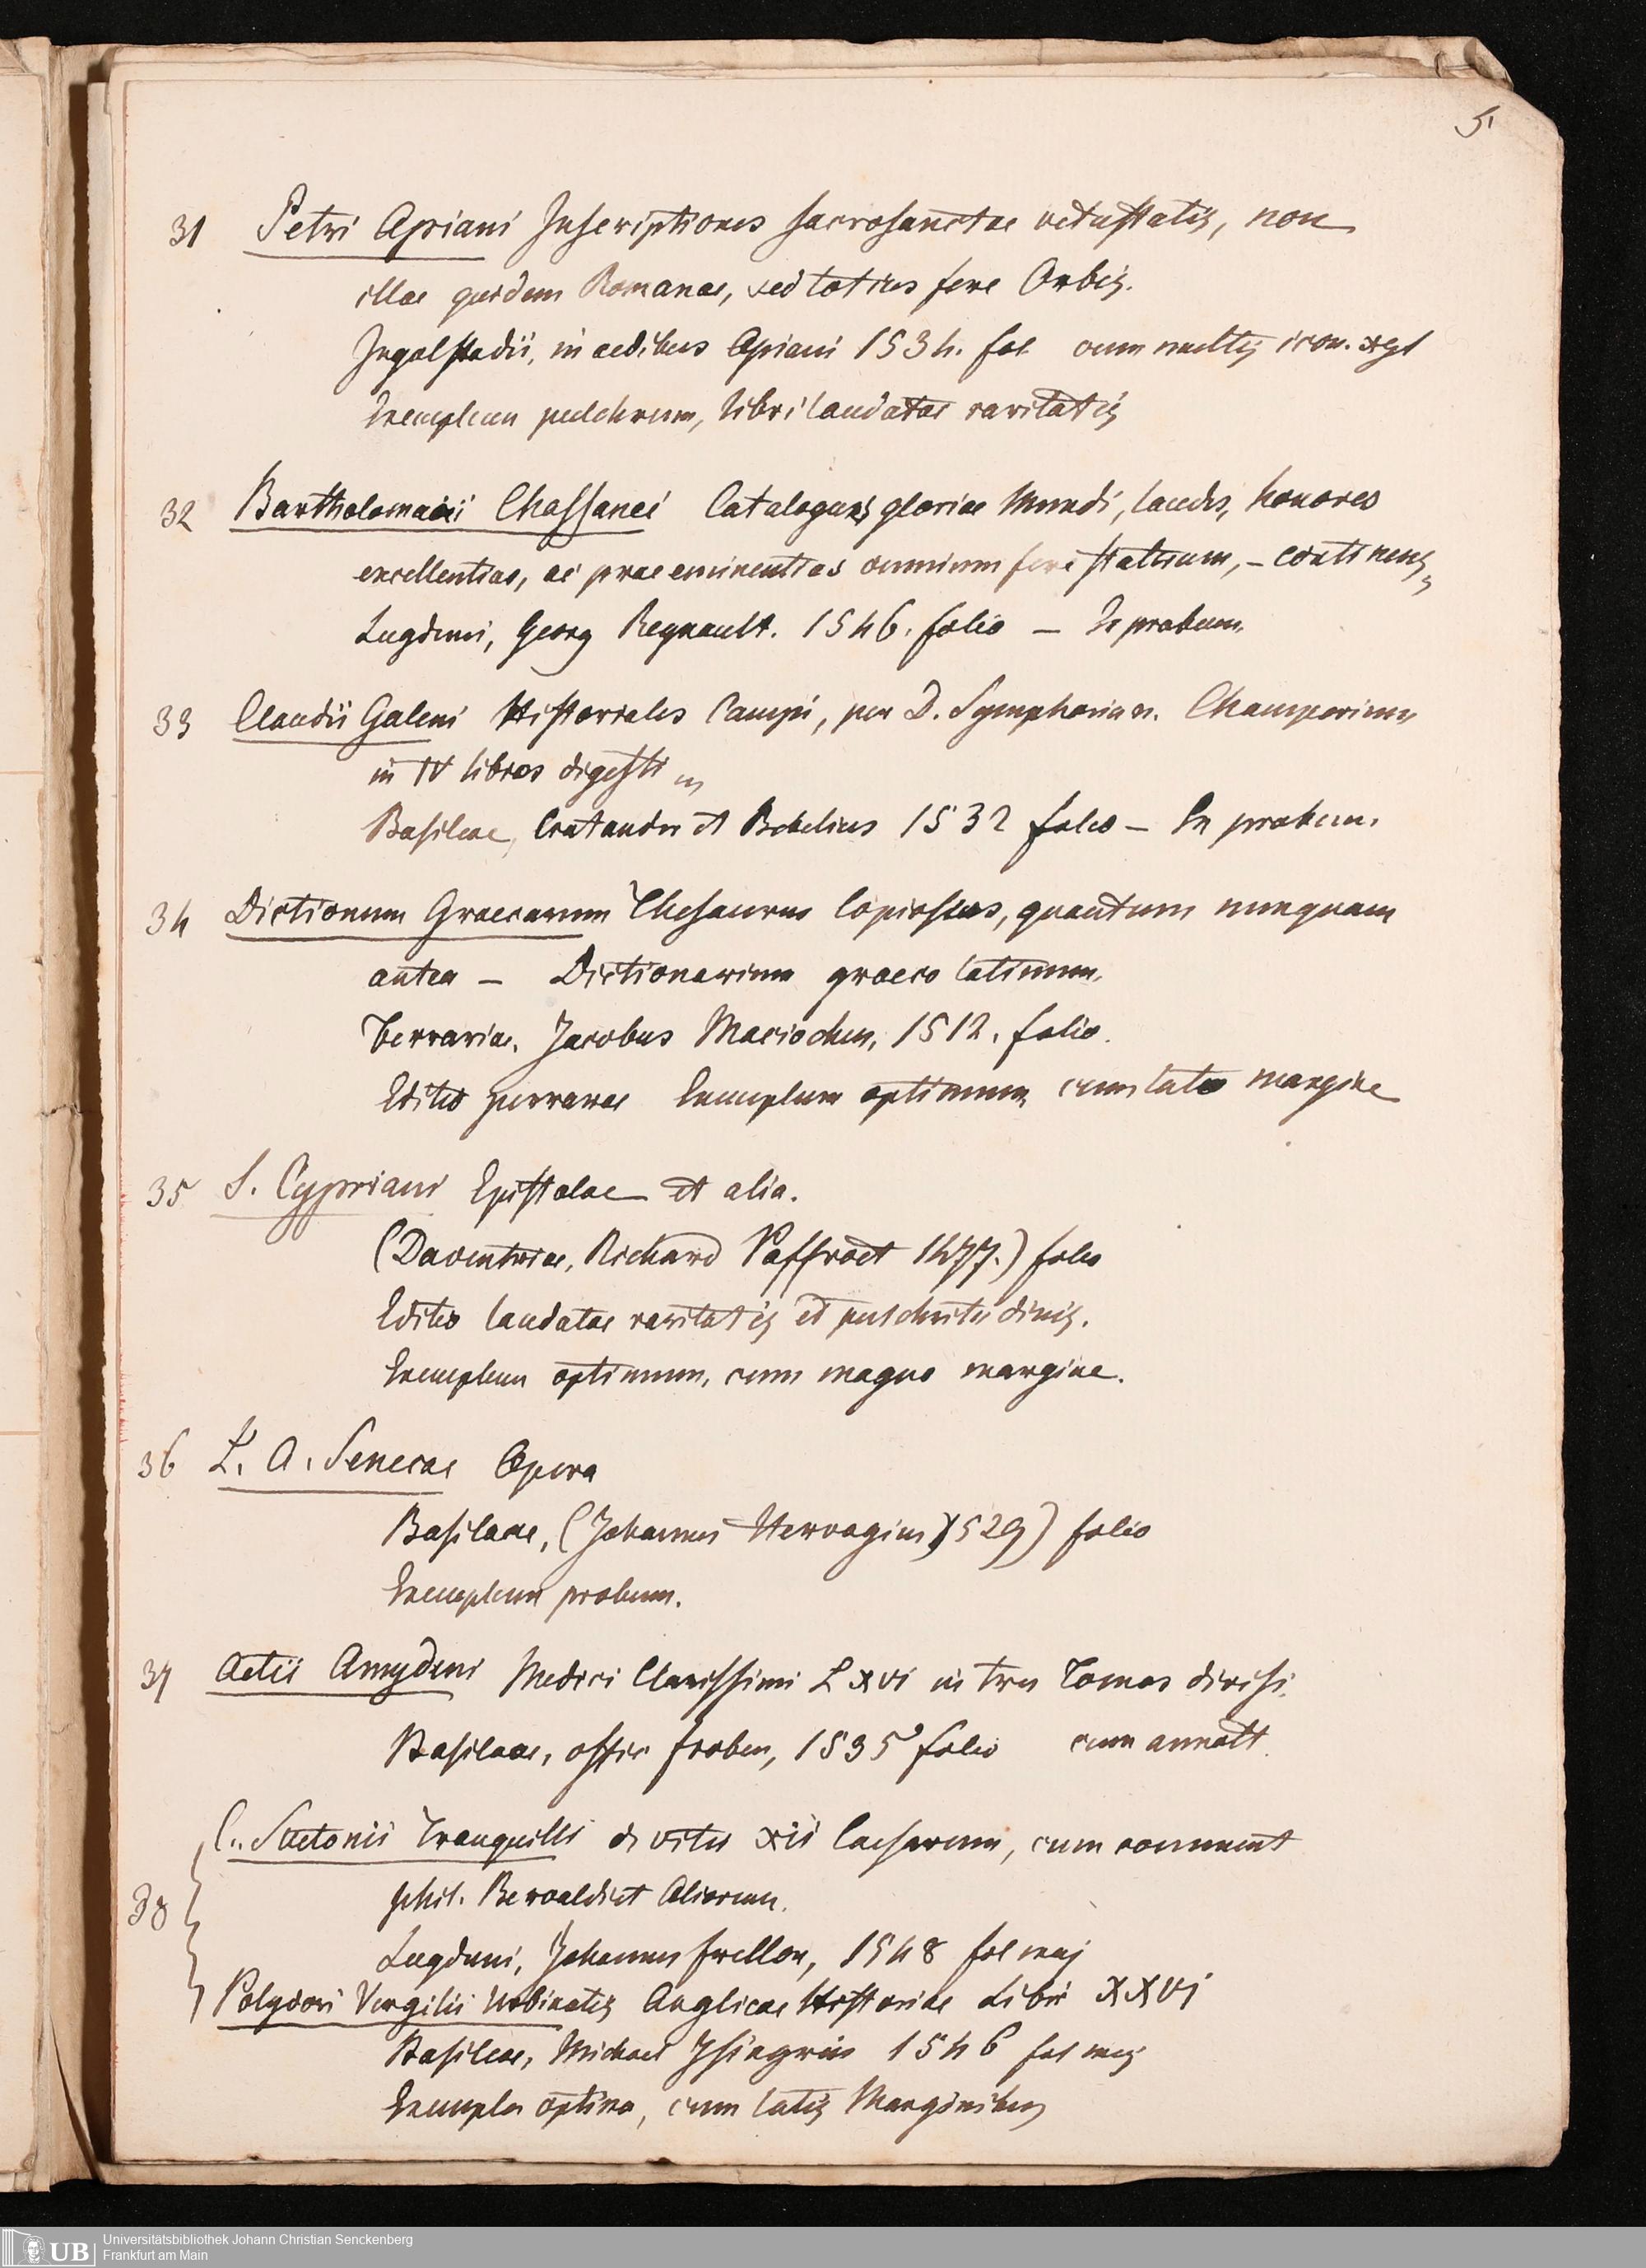 5.
31 Petri Apiani Inscriptiones sacrosanctae vetustatis, non
illae quidem Romanae, sed totius fere Orbis.
Ingolstadii, in aedibus Apiani 1534. fol cum multis icon. xyl
Exemplum pulchrum, libri laudatae raritatis
32 Bartholomaei Chassanei Catalogus gloriae Mundi, laudes, honores
excellentias, ac praeeminentias omnium fere statuum, - continens,
Lugduni, Georg Regnault. 1546. folio — Ex probum.
33 Claudii Galeni Historiales Campi, per D. Symphorian. Champerium
in IV libros digesti
Basileae, Cratander et Bebelius 1532 folio — Ex probum.
34 Dictionum Graecarum Thesaurus Copiosus, quantum nunquam
antea — Dictionarium graeco latinum.
Ferrariae. Jacobus Maciochus, 1512. folio.
Editio perrarae Exemplum optimum cum lato margine
35 S. Cypriani Epistolae et alia.
(Daventriae, Richard Paffroet 1477.) folio
Editio laudatae raritatis et pulchritudinis.
Exemplum optimum, cum magno margine.
36 L. A. Senecae Opera
Basileae, (Johannes Hervagius 1529) folio
Exemplum probum.
37 Aetii Amydeni Medici Clarissimi L xvi in tres Tomos divisi.
Basileae, offic froben, 1535 folio cum annott.
C. Suetonii Tranquilli de vitis xii Caesarum, cum comment
38 phil. Beroaldi et Aliorum.
Lugduni, Johannes frellon, 1548 fol maj
Polydori Vergilii Urbinatis Anglicae Historiae Libri XXVI
Basileae, Michael Isingrin 1546 fol maj
Exempla optima, cum latis Marginibus
UB Universitätsbibliothek Johann Christian Senckenberg
Frankfurt am Main